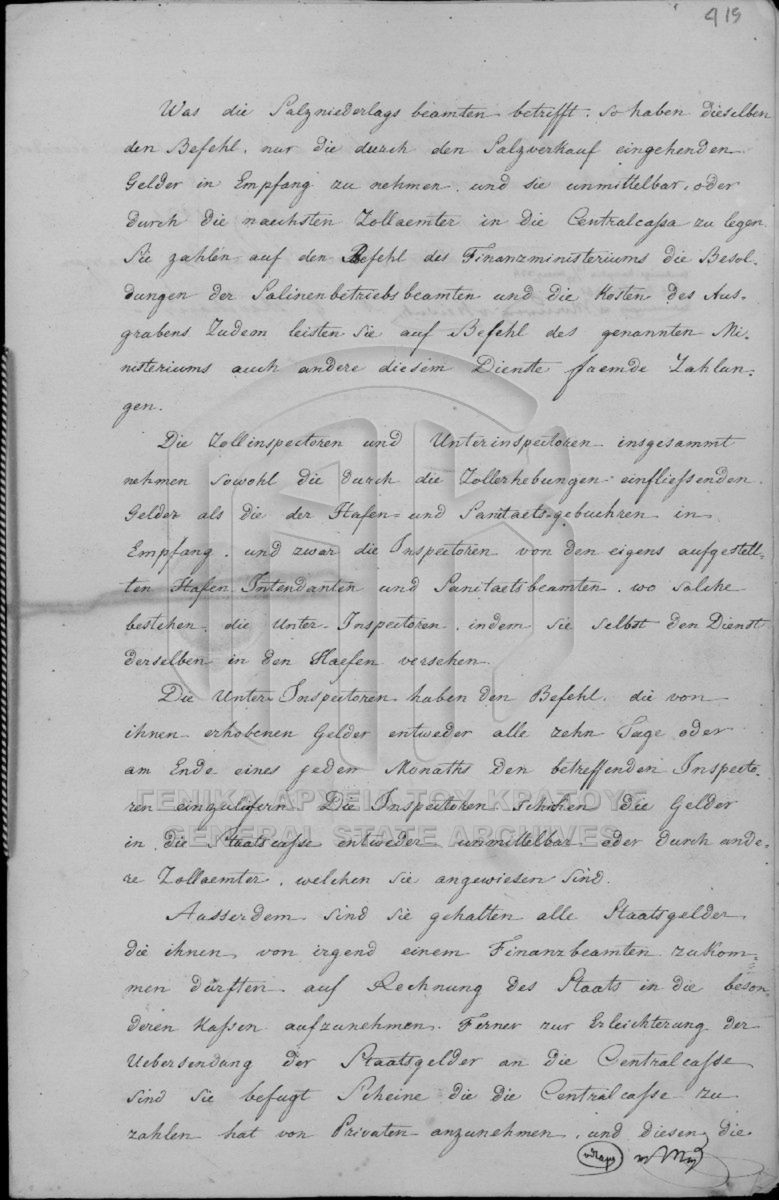 919
Was die Salzniederlags beamten betrifft. so haben dieselben
den Befehl, nur die durch den Salzverkauf eingehenden
Gelder in Empfang zu nehmen, und sie unmittelbar, oder
durch die naechsten Zollaemter in die Centralcassa zu legen.
Sie zahlen auf den Befehl des Finanzministeriums die Besol-
dungen der Salinenbetriebsbeamten und die Kosten des Aus-
grabens Zudem leisten sie auf Befehl des genannten Mi-
nisteriums auch andere diesem Dienste fremde Zahlun-
gen.
Die Zollinspectoren und Unterinspectoren insgesammt
nehmen sowohl die durch die Zollerhebungen einfliessenden
Gelder als die der Hafen- und Sanitaets-gebuehren in
Empfang, und zwar die Inspectoren von den eigens aufgestell-
ten Hafen Intendanten und Sanitaetsbeamten, wo solche
bestehen, die Unter-Inspectoren, indem sie selbst den Dienst
derselben in den Haefen versehen.
Die Unter-Inspectoren haben den Befehl, die von
ihnen erhobenen Gelder entweder alle zehn Tage oder
am Ende eines jeden Monaths den betreffenden Inspecto-
ren einzuliefern Die Inspectoren schicken die Gelder
in die Staatscasse entweder unmittelbar oder durch ande-
re Zollaemter, welchen sie angewiesen sind.
Ausserdem sind sie gehalten alle Staatsgelder
die ihnen von irgend einem Finanzbeamten zukom-
men dürften auf Rechnung des Staats in die beson-
deren Kassen aufzunehmen. Ferner zur Erleichterung der
Uebersendung der Staatsgelder an die Centralcasse
sind sie befugt Scheine die die Centralcasse zu
zahlen hat von Privaten anzunehmen, und diesen die
ΓΕΝΙΚΑ ΑΡΧΕΙΑ ΤΟΥ ΚΡΑΤΟΥΣ
GENERAL STATE ARCHIVES